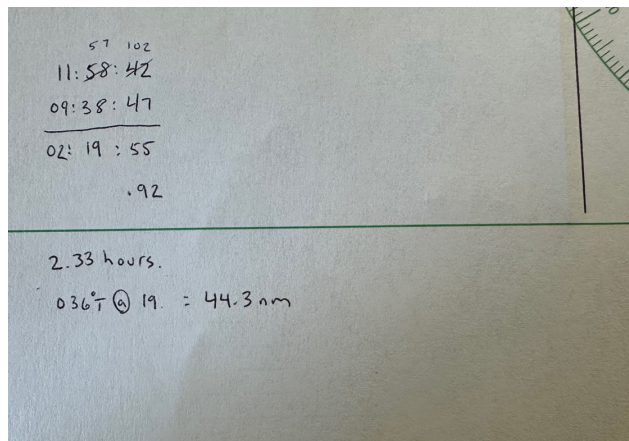 57 102
11:58:42
09:38:47
02: 19 : 55
.92
2.33 hours.
036°T @ 19. = 44.3 nm